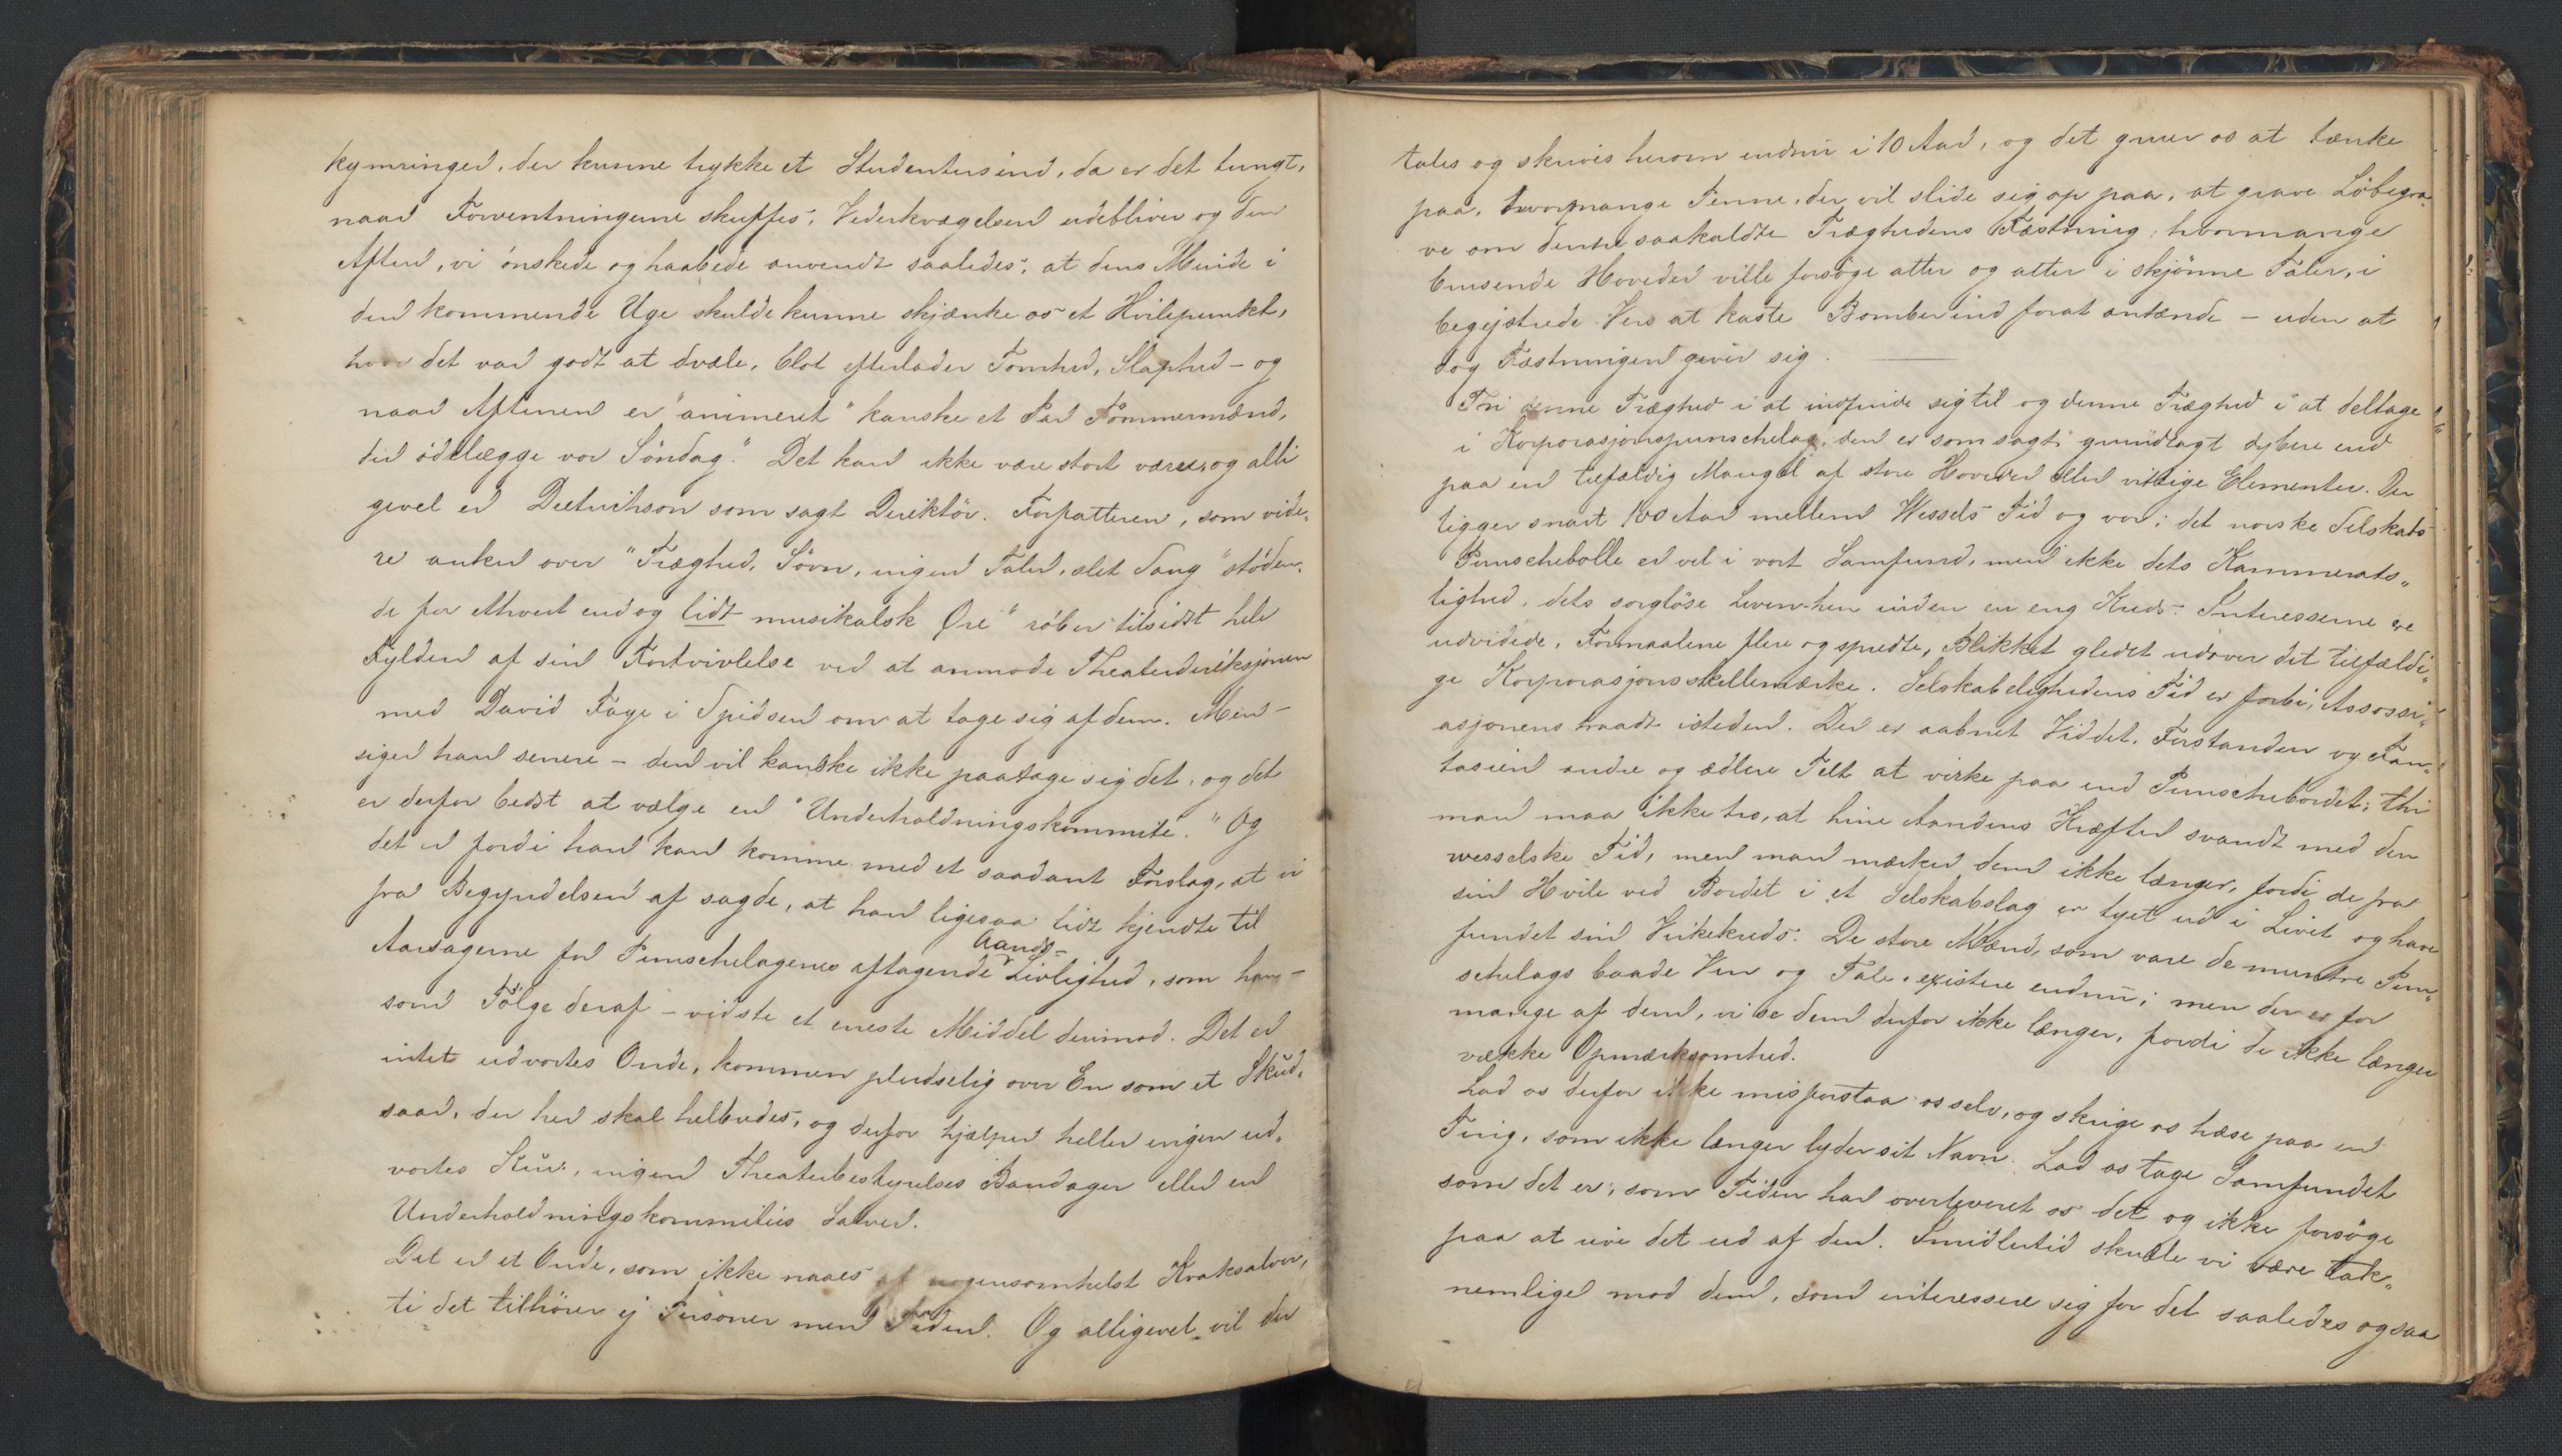 kymringer, der kunne trykke et Studentersind, da er det tungt,
naar Forventningerne skuffes, Vederkvægelsen udebliver og den
Aften, vi ønskede og haabede anvendt saaledes, at dens Minde i
den kommende Uge skulde kunne skjænke os et Hvilepunkt,
hvor det var godt at dvæle, blot efterlader Tomhed, Slaphed – og
naar Aftenen er "animeret" kanske et Par Tømmermænd,
der ødelægge vor Søndag." Det kan ikke være stort værre, og alli
gevel er Dietrichson som sagt Direktör. Forfatteren, som vide„
re anker over "Træghed, Søvn, ingen Taler, slet Sang" støden„
de for ethvert endog lidt musikalsk Øre" røber tilsidst hele
Fylden af sin Fortvivlelse ved at anmode Theaterdireksjonen
med David Fåye i Spidsen om at tage sig af dem. Men –
siger han senere – den vil kanske ikke paatage sig det, og det
er derfor bedst at vælge en "Underholdningskommite." Og
det er fordi han kan komme med et saadant Forslag, at vi
fra Begyndelsen af sagde, at han ligesaa lidt kjendte til
Aarsagerne for Punschelagenes aftagende Aands-Livlighed, som han –
som Følge deraf – vidste et eneste Middel derimod. Det er
intet udvortes Onde, kommen pludselig over En som et Skud„
saar, der her skal helbredes, og derfor hjælper heller ingen ud„
vortes Kur, ingen Theaterbestyrelses Bandager eller en
Underholdningskommitées Salver.
Det er et Onde, som ikke naaes af nogensomhelst Kvaksalver,
ti det tilhører ej Personer men Tiden. Og alligevel vil der
tales og skrives herom endnu i 10 Aar, og det gruer os at tænke
paa, hvormange Penne, der vil slide sig op paa, at grave Løbegra„
ve om denne saakaldte Træghedens Fæstning, hvormange
brusende Hoveder ville forsøge atter og atter i skjønne Taler, i
begejstrede Vers at kaste Bomber ind forat antænde – uden at
dog Fæstningen giver sig.
Thi denne Træghed i at indfinde sig til og denne Træghed i at deltage
i Korporasjonspunschelag, den er som sagt grundlagt dybere end
paa en tilfældig Mangel af store Hoveder eller vittige Elementer. Der
ligger snart 100 Aar mellem Wessels Tid og vor; det norske Selskabs
Punschebolle er vel i vort Samfund, men ikke dets Kammerats„
lighed, dets sorgløse Leven-hen inden en eng Kreds. Interesserne ere
udvidede, Formaalene flere og spredte, Blikket gledet udover det tilfældi„
ge Korporasjonsskillemærke. Selskabelighedens Tid er forbi, Assossi„
asjonens traadt isteden. Der er aabnet Viddet, Forstanden og Fan„
tasien andre og ædlere Felt at virke paa end Punschebordet; thi
man maa ikke tro, at hine Aandens Kræfter svandt med den
wesselske Tid, men man mærker dem ikke længer, fordi de fra
sin Hvile ved Bordet i et Selskabslag er tyet ud i Livet og have
fundet sin Virkekreds. De store Mænd, som vare de muntre Pun„
schelags baade Vin og Tale, existere endnu; men der er for
mange af dem, vi se dem derfor ikke længer, fordi de ikke længer
vække Opmærksomhed.
Lad os derfor ikke misforstaa os selv, og skrige os hæse paa en
Ting, som ikke længer lyder sit Navn. Lad os tage Samfundet
som det er, som Tiden har overleveret os det og ikke forsøge
paa at rive det ud af den. Imidlertid skulle vi være tak„
nemlige mod dem, som interessere sig for det saaledes ogsaa